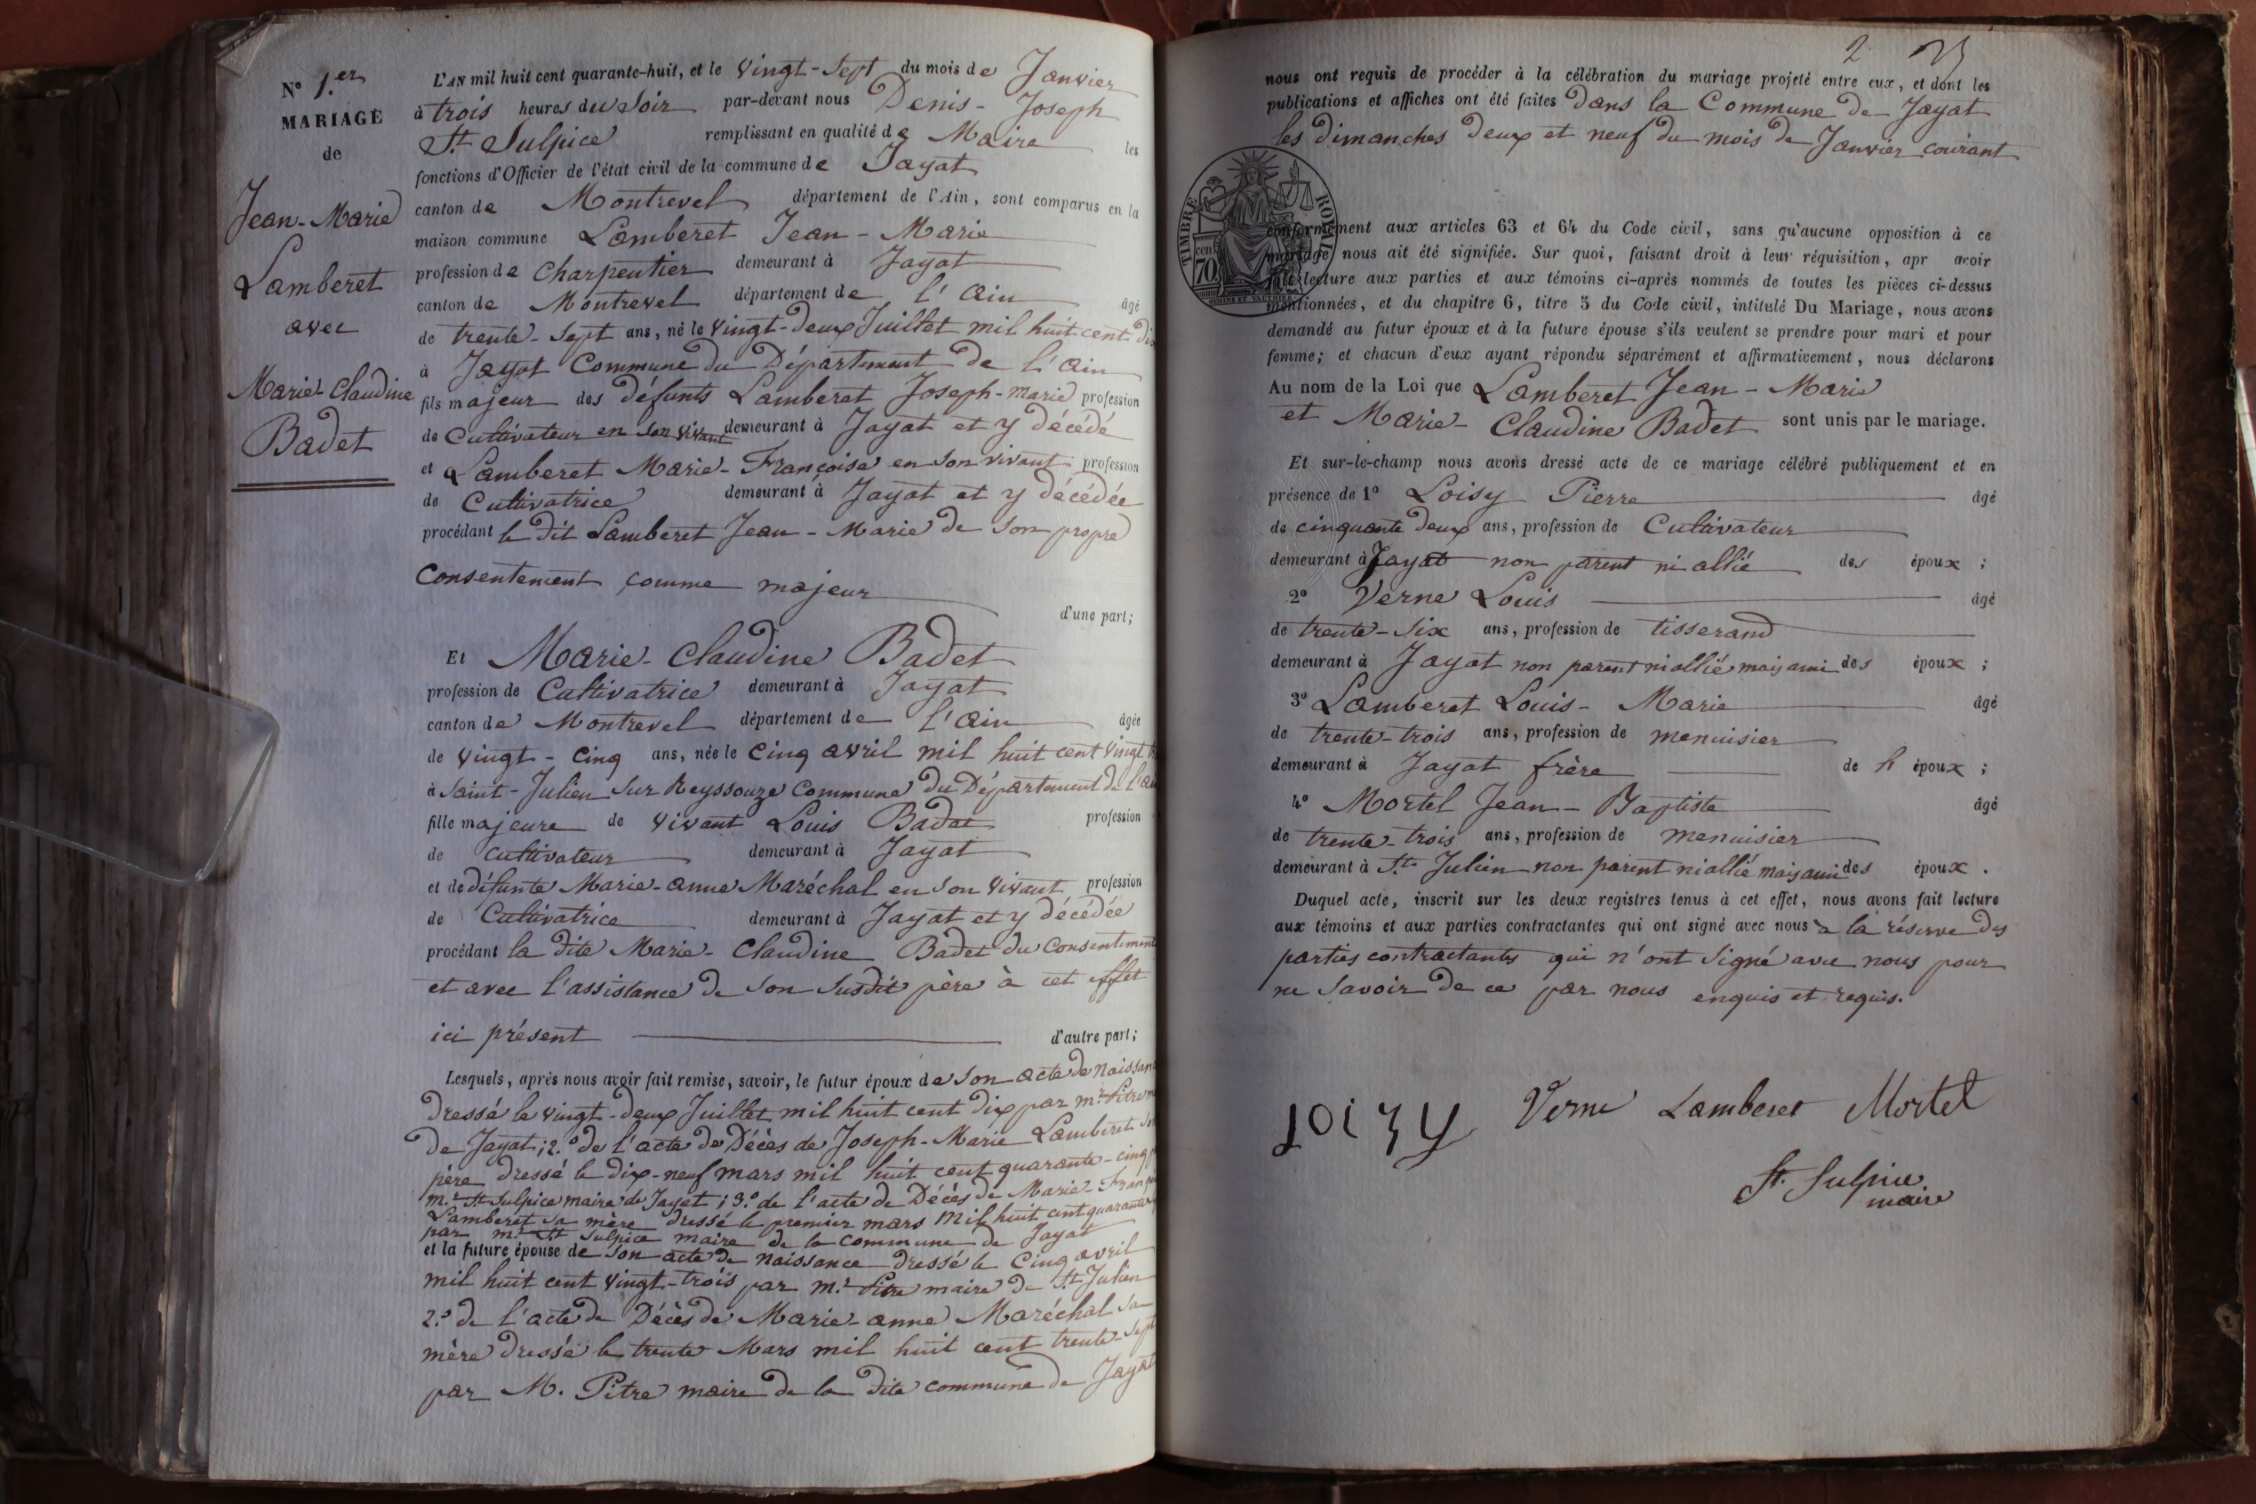 N° 1.er
MARIAGE
de
Jean-Marie
Lamberet
avec
Marie-Claudine
Badet
L'AN mil huit cent quarante-huit, et le vingt-sept du mois de Janvier
à trois heures du soir par-devant nous Denis-Joseph
St Sulpice remplissant en qualité de Maire les
fonctions d'Officier de l'état civil de la commune de Jayat
canton de Montrevel département de l'Ain, sont comparus en la
maison commune Lamberet Jean-Marie
profession de charpentier demeurant à Jayat
canton de Montrevel département de l'Ain âgé
de trente-sept ans, né le vingt-deux Juillet mil huit cent dix
à Jayat Commune du Département de l'Ain
fils majeur des défunts Lamberet Joseph-Marie profession
de Cultivateur en son vivant demeurant à Jayat et y décédé
et Lamberet Marie-Françoise en son vivant profession
de Cultivatrice demeurant à Jayat et y décédée
procédant le dit Lamberet Jean-Marie de son propre
Consentement comme majeur
d'une part;
Et Marie-Claudine Badet
profession de Cultivatrice demeurant à Jayat
canton de Montrevel département de l'Ain âgée
de vingt-cinq ans, née le cinq avril mil huit cent vingt
à Saint-Julien Sur Reyssouze Commune du Département de l'Ain
fille majeure de vivant Louis Badet profession
de cultivateur demeurant à Jayat
et de défunte Marie-anne Maréchal en son vivant profession
de Cultivatrice demeurant à Jayat et y décédée
procédant la dite Marie-Claudine Badet du Consentement
et avec l'assistance de son susdit père à cet effet
ici présent d'autre part;
Lesquels, après nous avoir fait remise, savoir, le futur époux de son acte de naissan
dressé le vingt-deux Juillet mil huit cent dix par mr Pitre
de Jayat; 2.° de l'acte de Décès de Joseph-Marie Lamberet
père dressé le dix-neuf mars mil huit cent quarante-cinq
mr St Sulpice maire de Jayat; 3.° de l'acte de Décès de Marie-Fran
Lamberet sa mère dressé le premier mars mil huit cent quarante
par mr St Sulpice maire de la commune de Jayat
et la future épouse de son acte de naissance dressé le cinq avril
mil huit cent vingt-trois par mr Pitre maire de St Julien
2.° de l'acte de Décès de Marie-anne Maréchal sa
mère dressé le trente Mars mil huit cent trente-sept
par M. Pitre maire de la dite commune de Jayat
2
nous ont requis de procéder à la célébration du mariage projeté entre eux, et dont les
publications et affiches ont été faites dans la Commune de Jayat
les dimanches deux et neuf du mois de Janvier courant
TIMBRE ROYAL
70
conformément aux articles 63 et 64 du Code civil, sans qu'aucune opposition à ce
mariage nous ait été signifiée. Sur quoi, faisant droit à leur réquisition, apr avoir
fait lecture aux parties et aux témoins ci-après nommés de toutes les pièces ci-dessus
mentionnées, et du chapitre 6, titre 5 du Code civil, intitulé Du Mariage, nous avons
demandé au futur époux et à la future épouse s'ils veulent se prendre pour mari et pour
femme; et chacun d'eux ayant répondu séparément et affirmativement, nous déclarons
Au nom de la Loi que Lamberet Jean-Marie
et Marie-Claudine Badet sont unis par le mariage.
Et sur-le-champ nous avons dressé acte de ce mariage célébré publiquement et en
présence de 1° Loisy Pierre âgé
de cinquante deux ans, profession de Cultivateur
demeurant à Jayat non parent ni allié des époux;
2° Verne Louis âgé
de trente-six ans, profession de tisserand
demeurant à Jayat non parent ni allié mais ami des époux;
3° Lamberet Louis-Marie âgé
de trente-trois ans, profession de menuisier
demeurant à Jayat frère de l' époux;
4° Mortel Jean-Baptiste âgé
de trente-trois ans, profession de menuisier
demeurant à St Julien non parent ni allié mais ami des époux.
Duquel acte, inscrit sur les deux registres tenus à cet effet, nous avons fait lecture
aux témoins et aux parties contractantes qui ont signé avec nous à la réserve des
parties contractantes qui n'ont signé avec nous pour
ne savoir de ce par nous enquis et requis.
Loizy Verne Lamberet Mortel
St Sulpice
maire